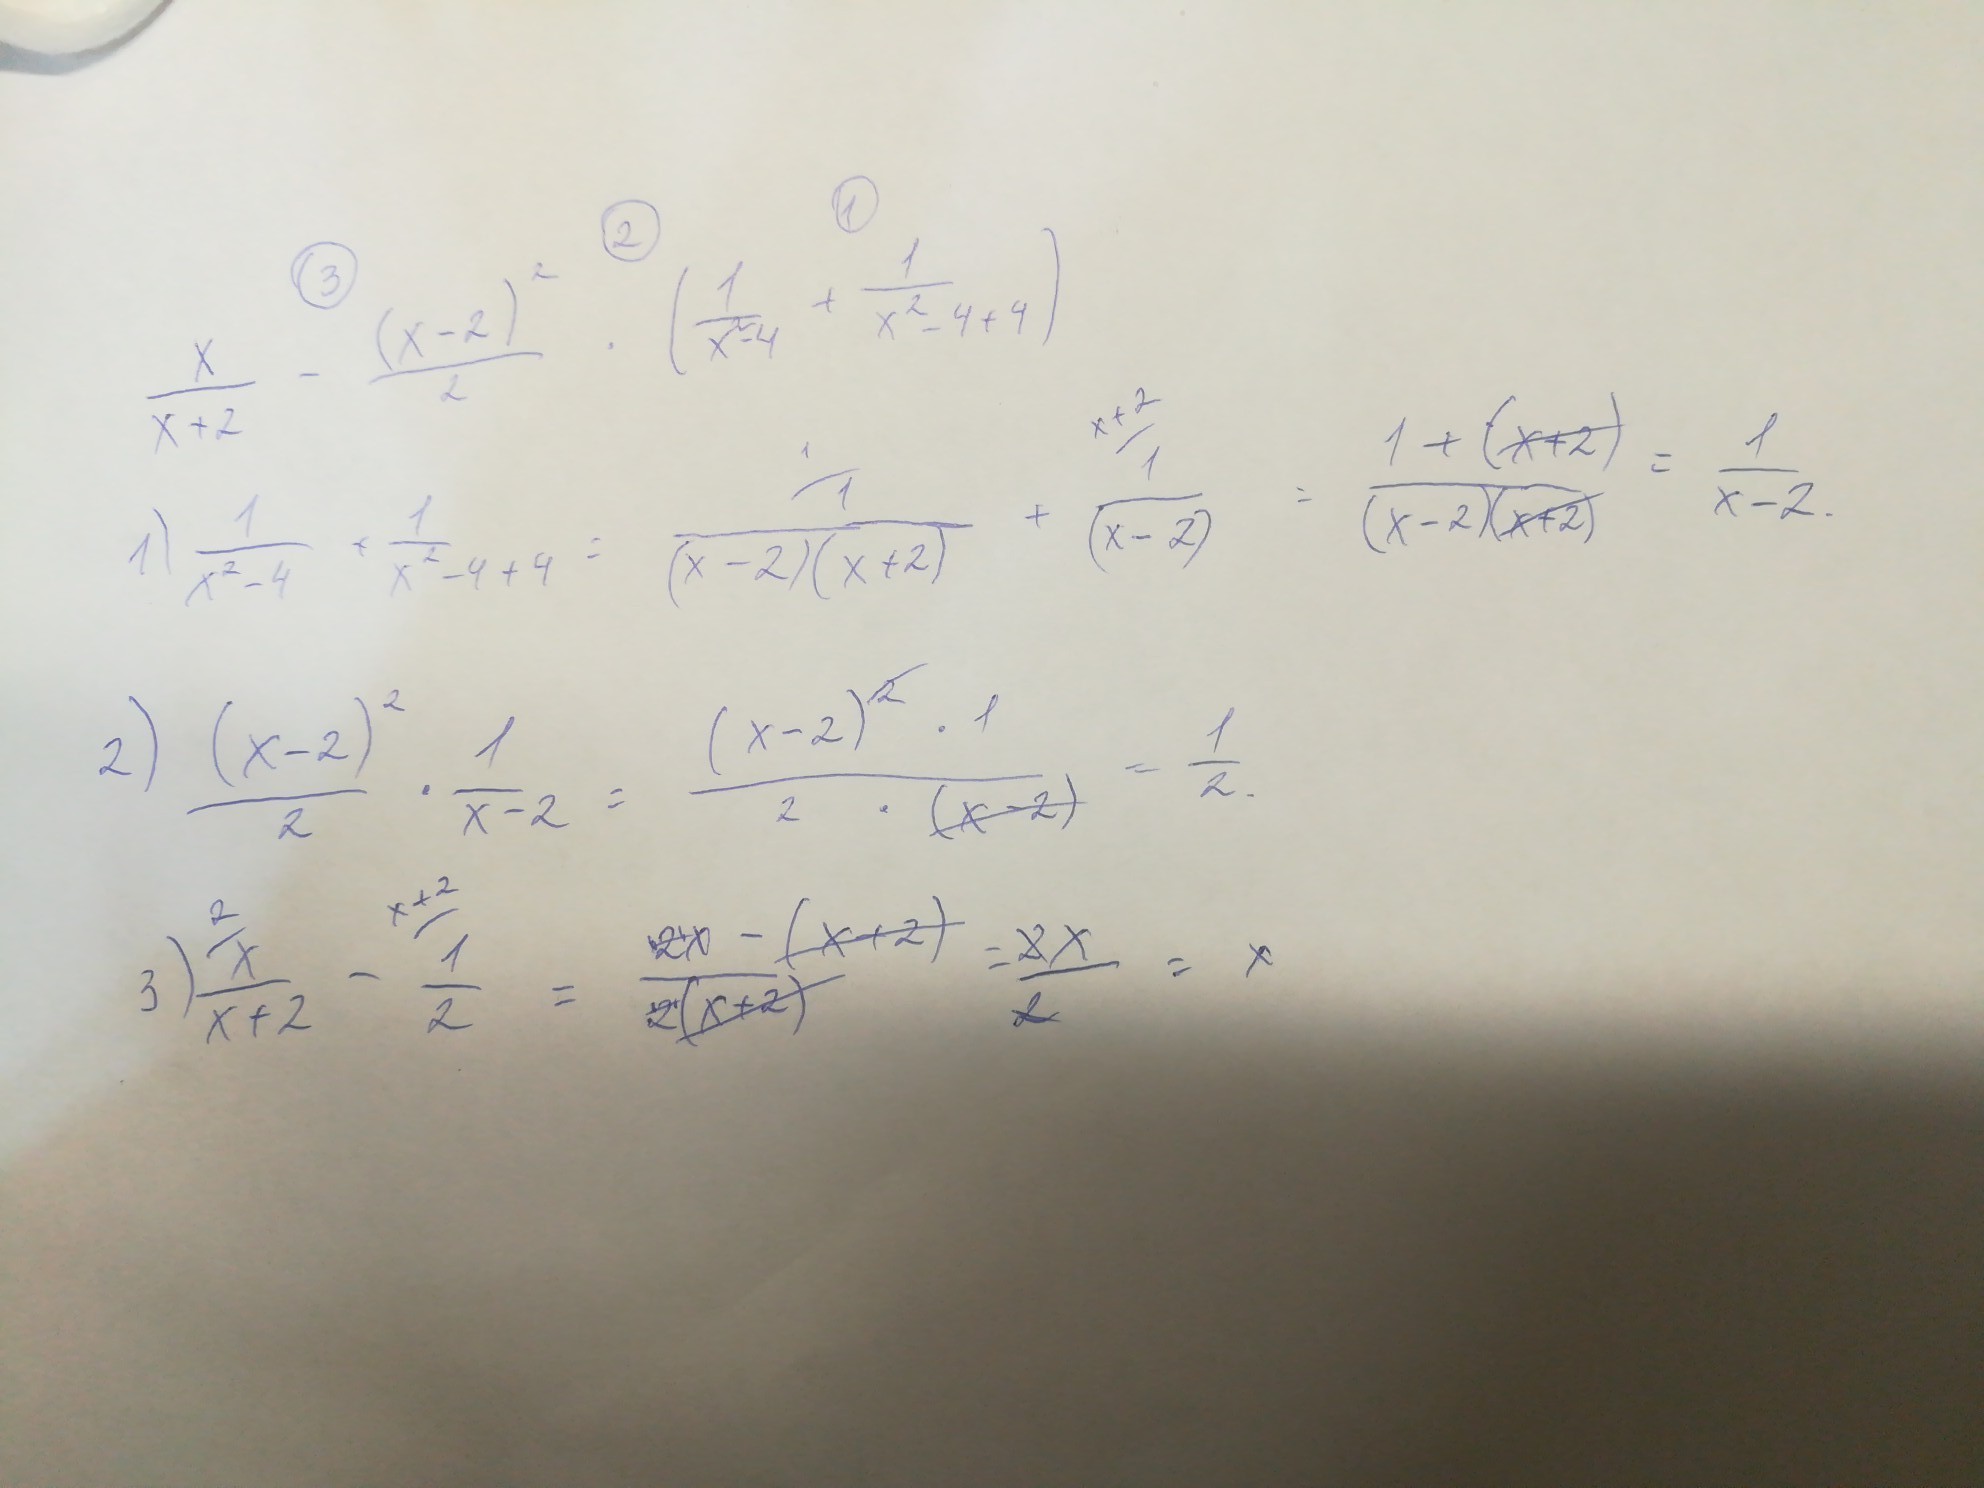 ③ ② ①
x/(x+2) - (x-2)²/2 · (1/(x²-4) + 1/(x²-4+4))
1) 1/(x²-4) + 1/(x²-4+4) = 1/((x-2)(x+2)) + 1/(x-2) = (1+(x+2))/((x-2)(x+2)) = 1/(x-2).
2) (x-2)²/2 · 1/(x-2) = ((x-2)² · 1)/(2 · (x-2)) = 1/2.
3) x/(x+2) - 1/2 = (2x-(x+2))/(2(x+2)) = 2x/2 = x